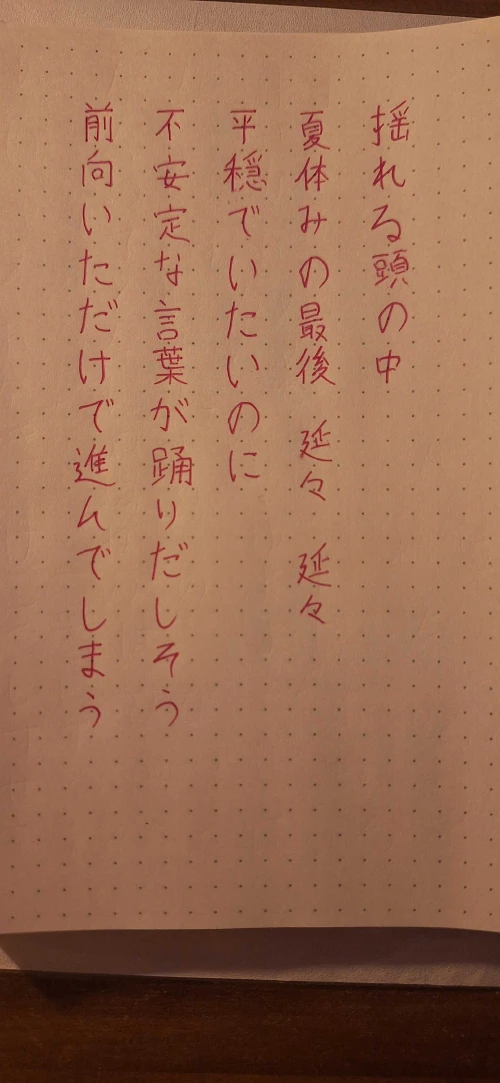 揺れる頭の中
夏休みの最後　延々　延々
平穏でいたいのに
不安定な言葉が踊りだしそう
前向いただけで進んでしまう